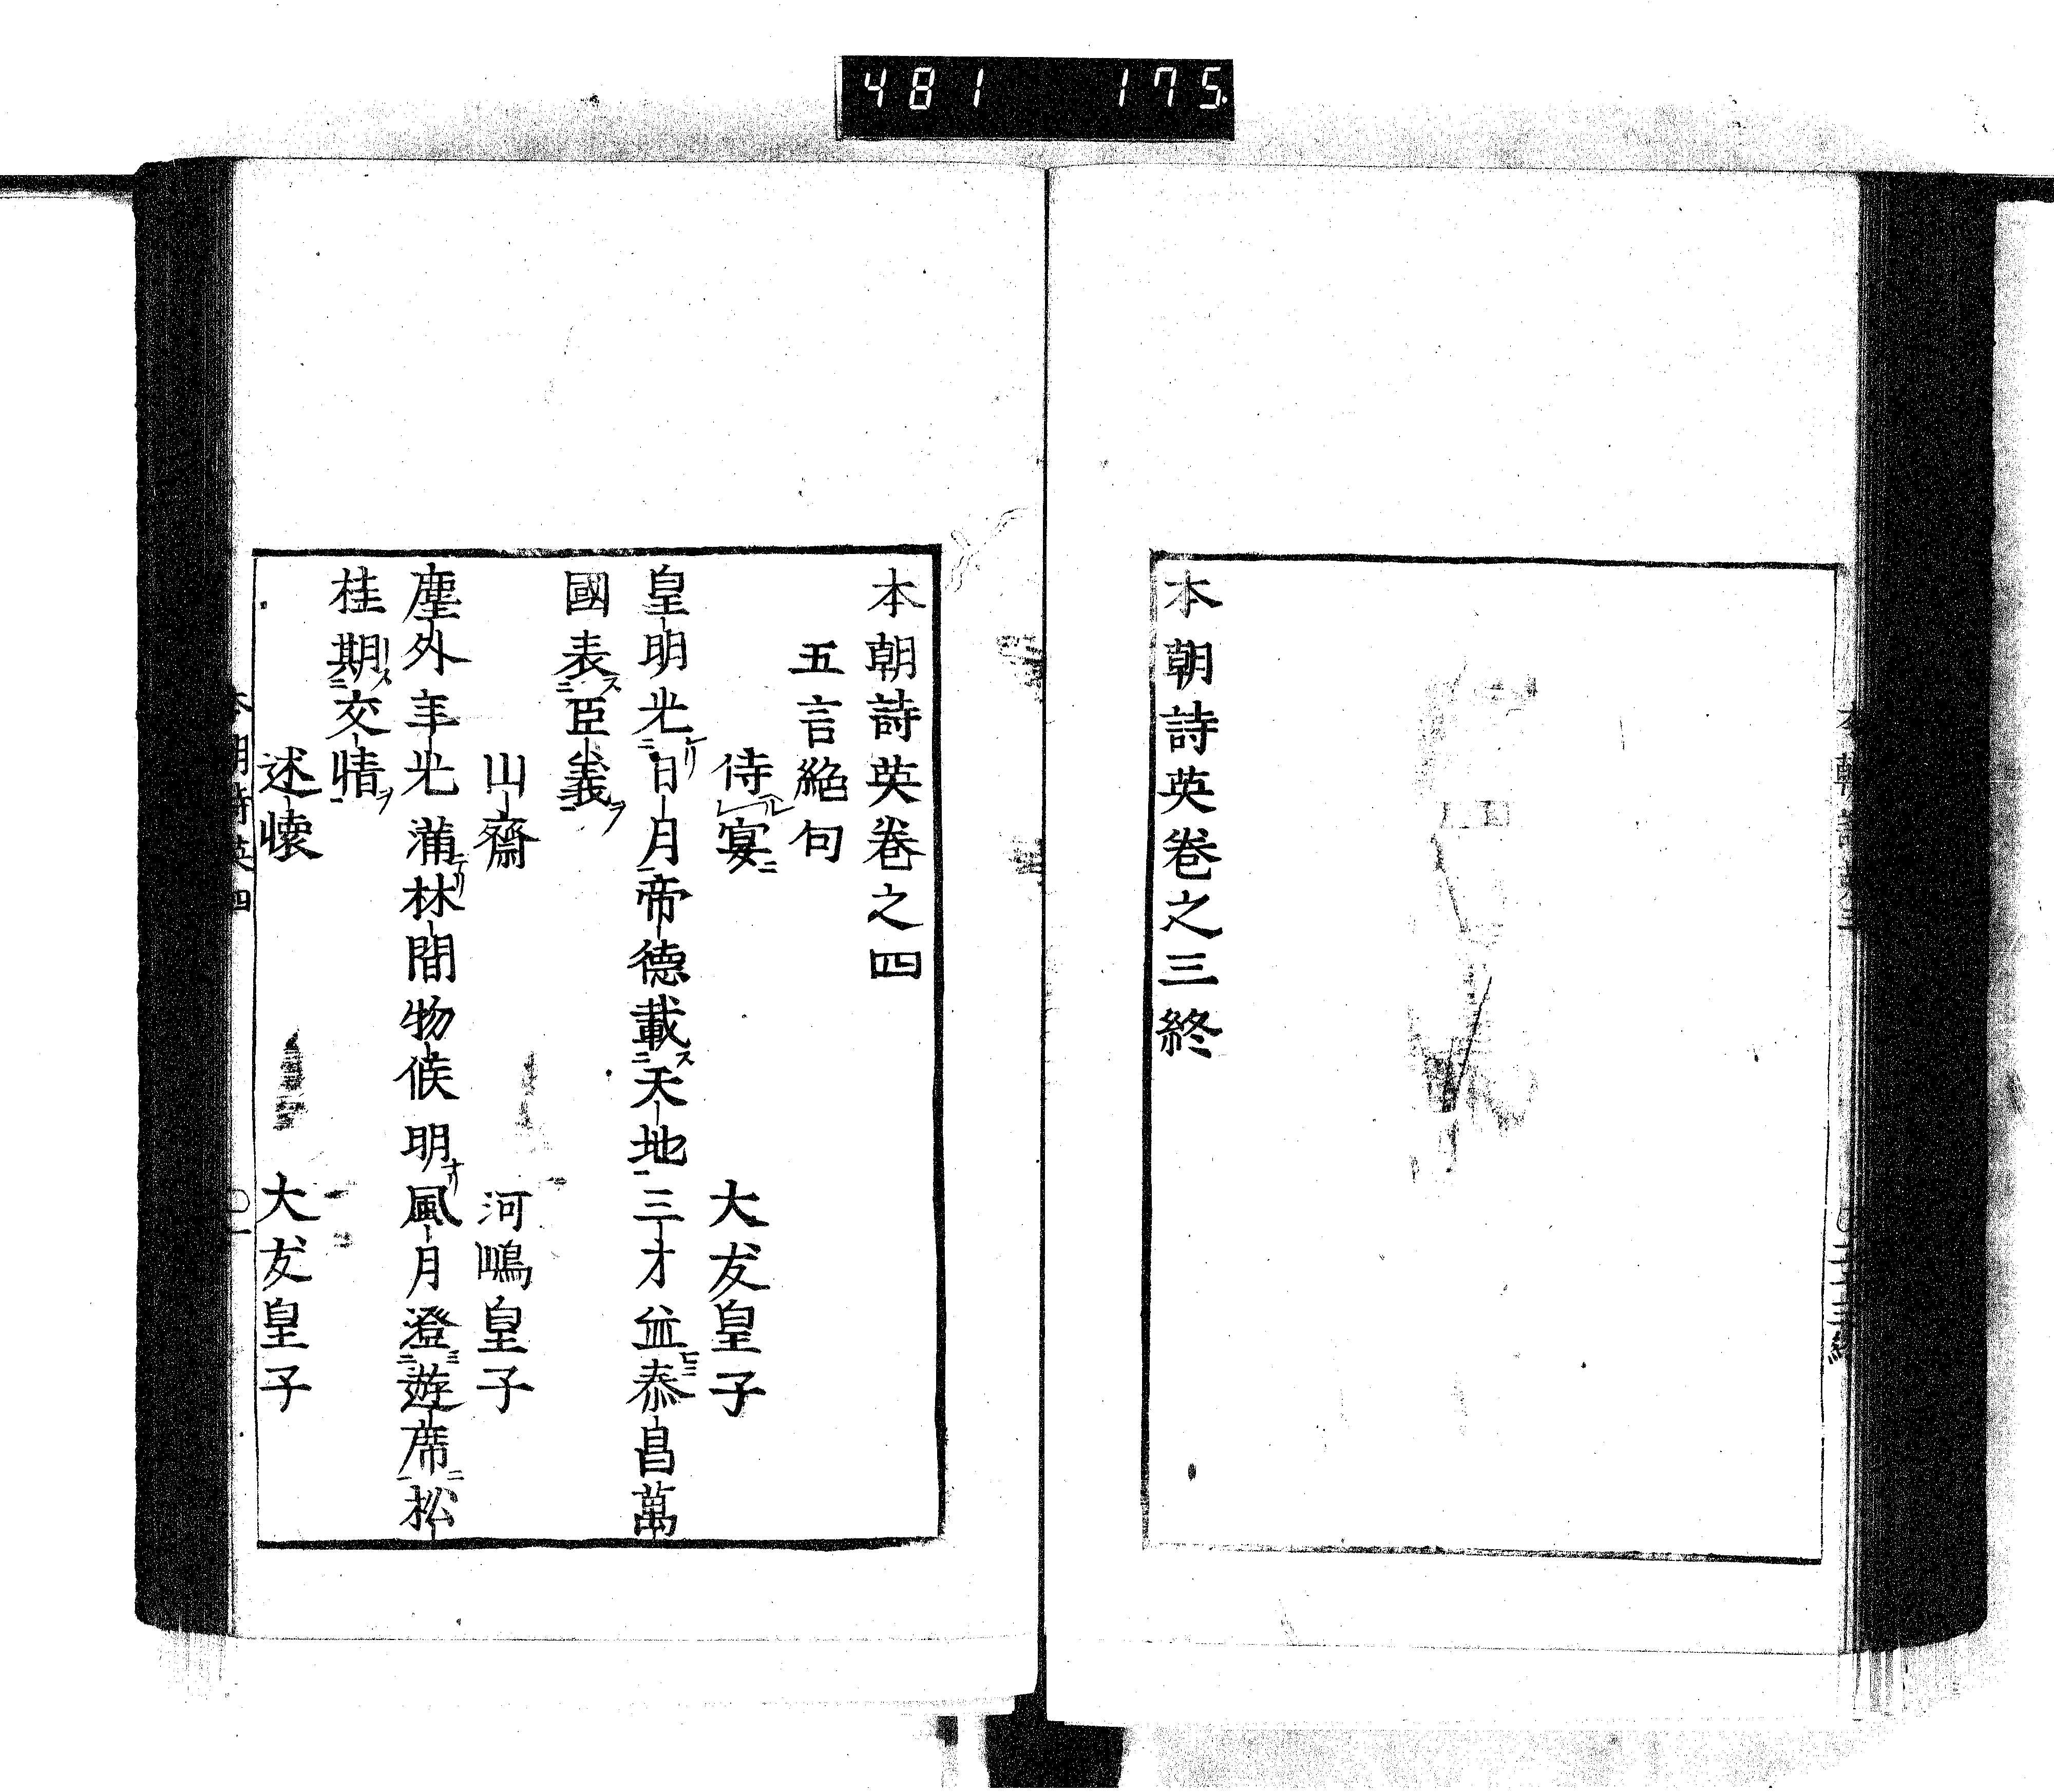 481 175
本朝詩英卷之三終
本朝詩英卷之四
五言絕句
侍宴 大友皇子
皇明光日月帝德載天地三才並泰昌萬
國表臣義
山齋 河嶋皇子
塵外年光滿林間物候明風月澄遊席松
桂期交情
述懷 大友皇子
本朝詩英四 〇一